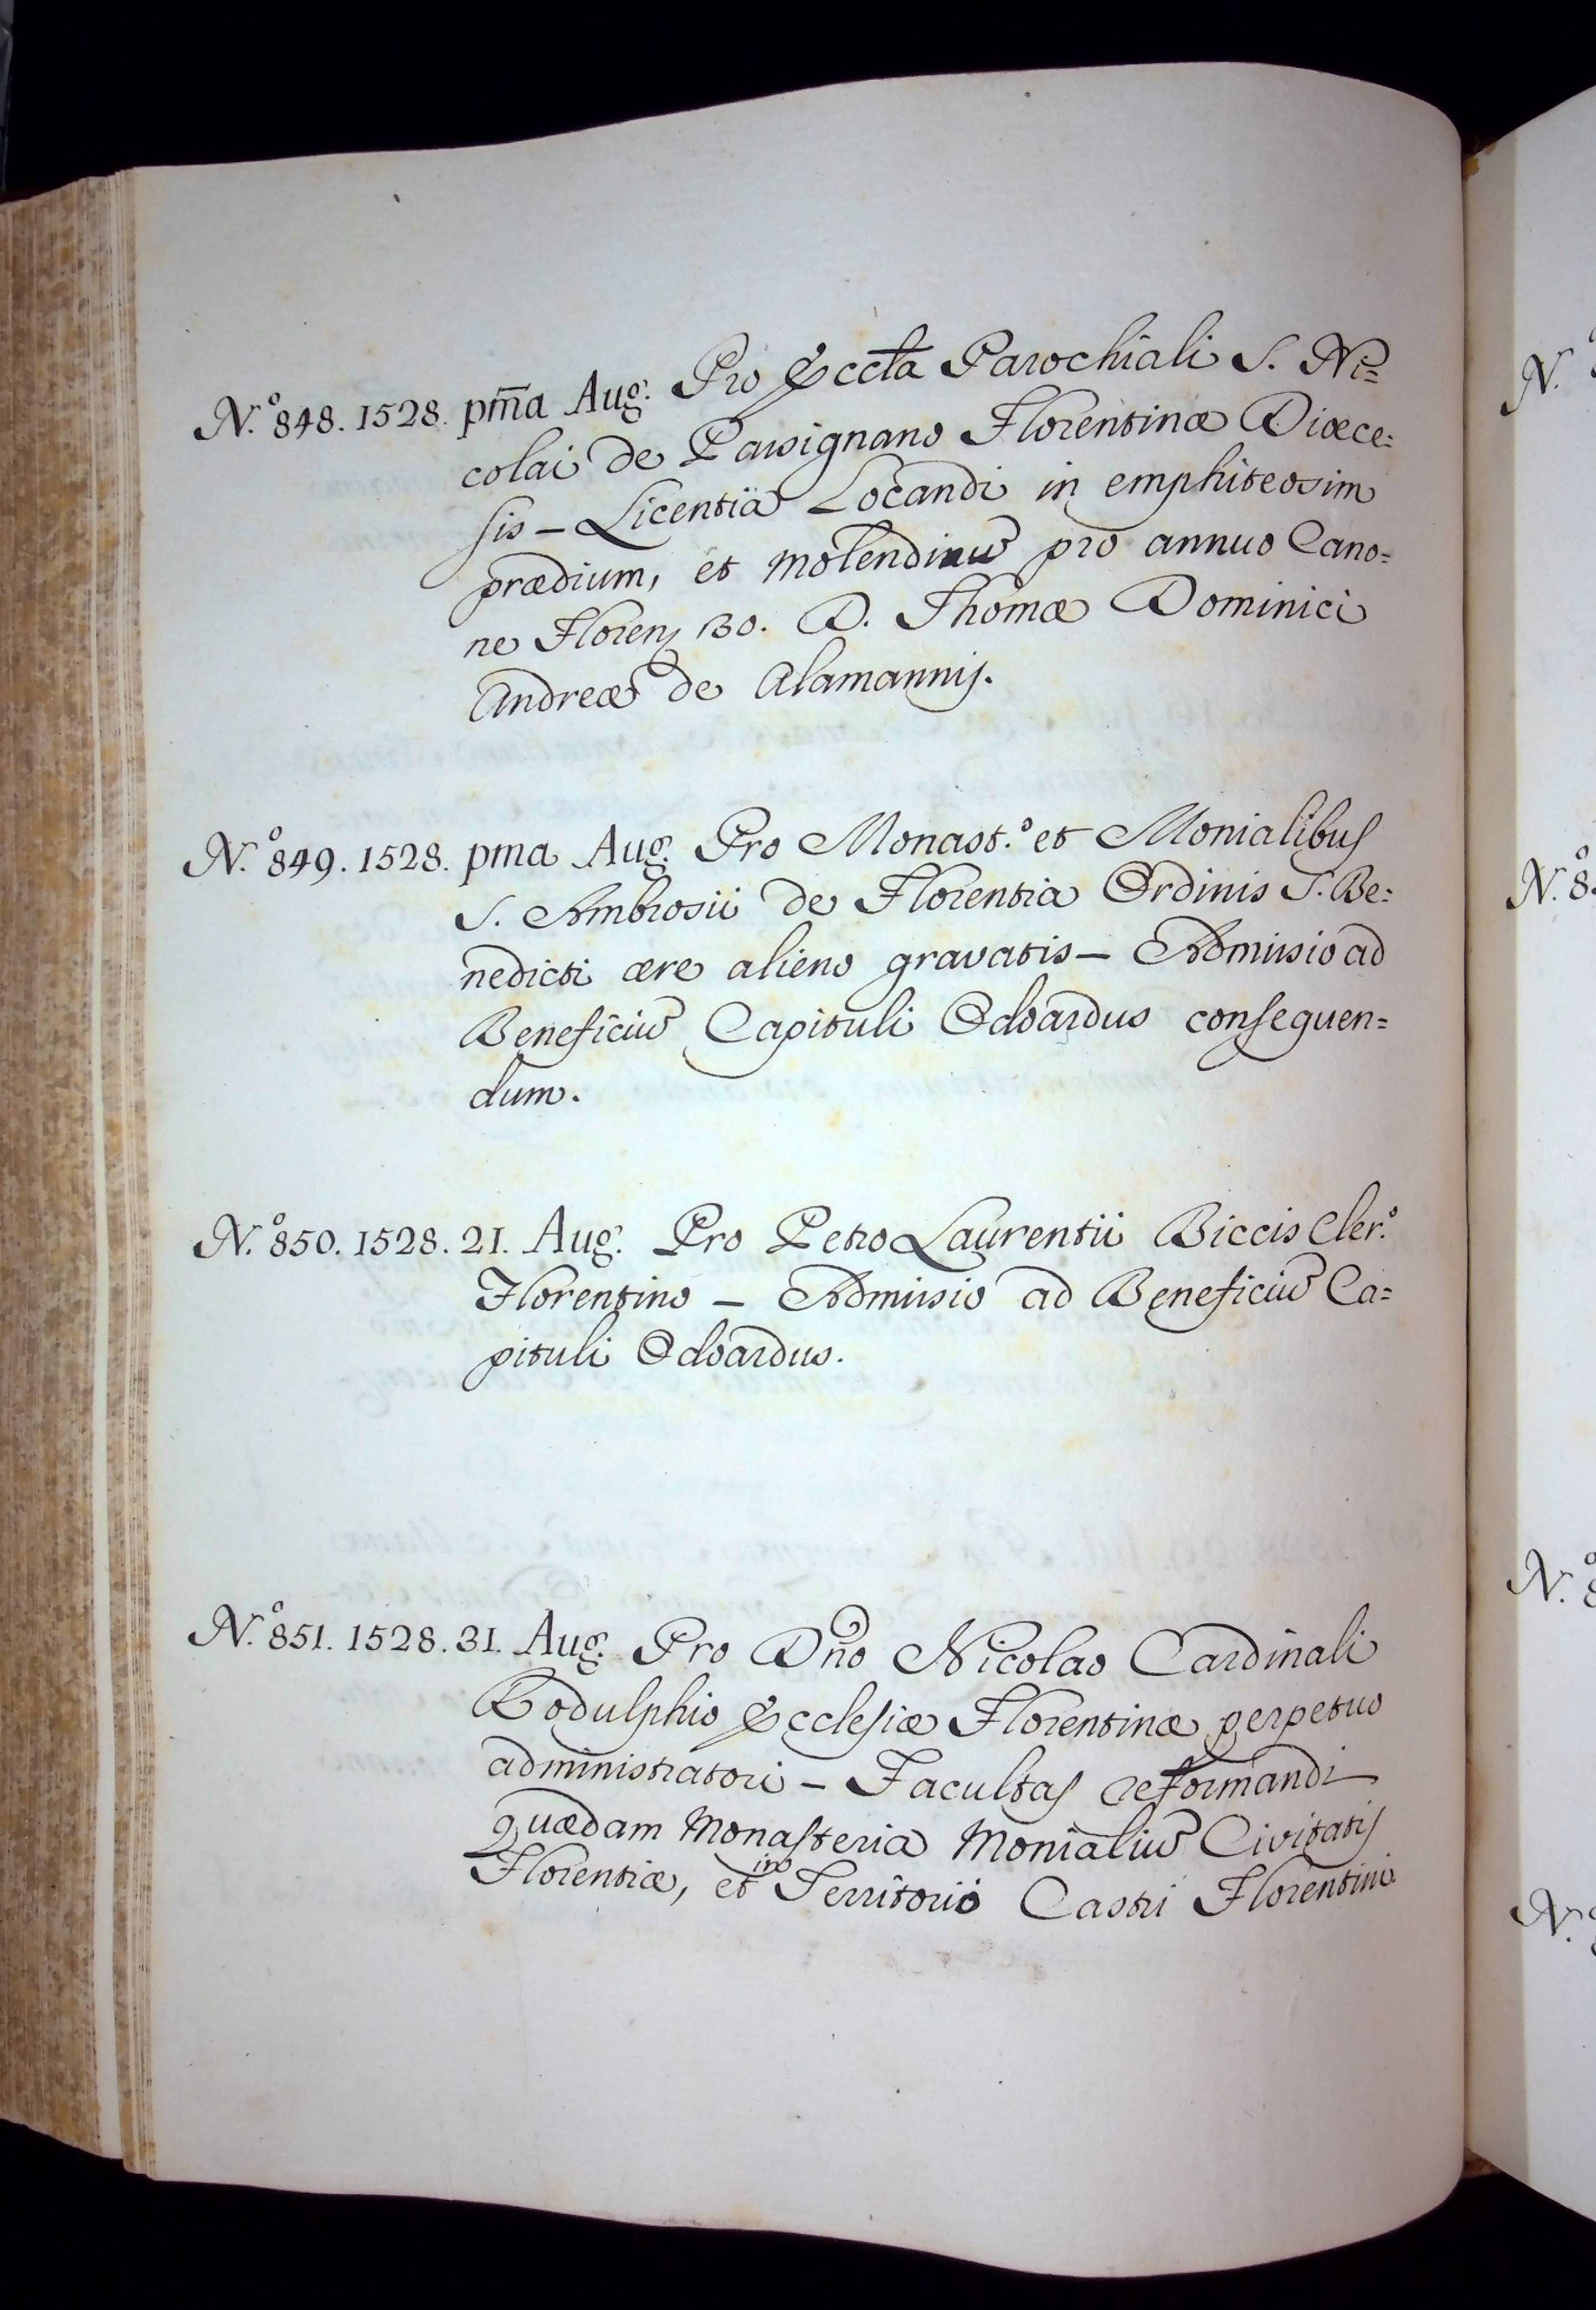 N.º 848. 1528. pm̃a Aug. Pro Eccl̃a Parochiali S. Ni=
colai de Parsignano Florentinæ Diœce=
sis - Licentia Locandi in emphiteosim
prædium, et molendinũ pro annuo Cano=
ne Floren 130. D. Thomæ Dominici
Andreæ de Alamannis.
N.º 849. 1528. pma Aug. Pro Monast.º et Monialibus
S. Ambrosii de Florentia Ordinis S. Be=
nedicti ære alieno gravatis - Admissio ad
Beneficiũ Capituli Odoardus consequen=
dum.
N.º 850. 1528. 21. Aug. Pro Petro Laurentii Biccis Cler.º
Florentino - Admissio ad Beneficiũ Ca=
pituli Odoardus.
N.º 851. 1528. 31. Aug. Pro Dño Nicolao Cardinali
Rodulphio Ecclesiæ Florentinæ perpetuo
administratori - Facultas reformandi
quædam Monasteria Monialiũ Civitatis
Florentiæ, et in Territorio Castri Florentini
N.º
N.º 8
N.º
N.